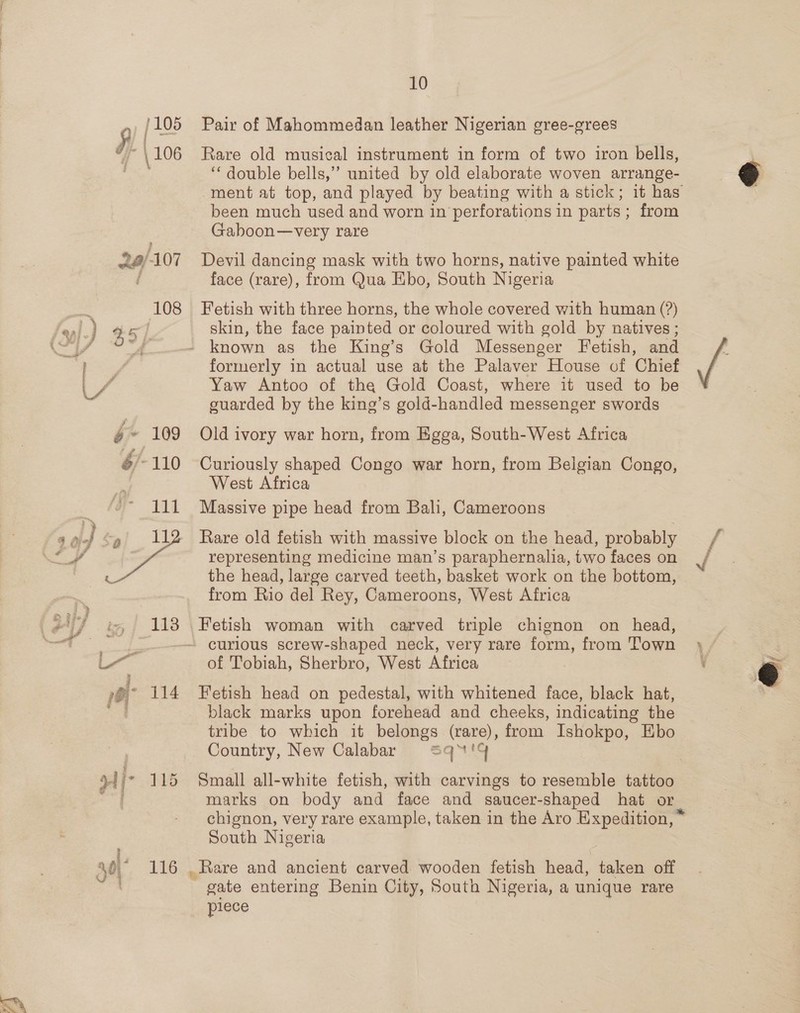 10
105 Pair of Mahommedan leather Nigerian gree-grees
106 Rare old musical instrument in form of two iron bells,
“double bells,” united by old elaborate woven arrange-
ment at top, and played by beating with a stick; it has
been much used and worn in perforations in parts; from
Gaboon—very rare
20/- 107 Devil dancing mask with two horns, native painted white
face (rare), from Qua Ebo, South Nigeria
108 Fetish with three horns, the whole covered with human (?)
35/- skin, the face painted or coloured with gold by natives;
known as the King’s Gold Messenger Fetish, and
formerly in actual use at the Palaver House of Chief
Yaw Antoo of the Gold Coast, where it used to be
guarded by the king’s gold-handled messenger swords
109 Old ivory war horn, from Egga, South-West Africa
6/- 110 Curiously shaped Congo war horn, from Belgian Congo,
West Africa
111 Massive pipe head from Bali, Cameroons
112 Rare old fetish with massive block on the head, probably
representing medicine man’s paraphernalia, two faces on
the head, large carved teeth, basket work on the bottom,
from Rio del Rey, Cameroons, West Africa
113 Fetish woman with carved triple chignon on head,
curious screw-shaped neck, very rare form, from Town
of Tobiah, Sherbro, West Africa
114 Fetish head on pedestal, with whitened face, black hat,
black marks upon forehead and cheeks, indicating the
tribe to which it belongs (rare), from Ishokpo, Ebo
Country, New Calabar
115 Small all-white fetish, with carvings to resemble tattoo
marks on body and face and saucer-shaped hat or
chignon, very rare example, taken in the Aro Expedition,
South Nigeria
116 Rare and ancient carved wooden fetish head, taken off
gate entering Benin City, South Nigeria, a unique rare
piece